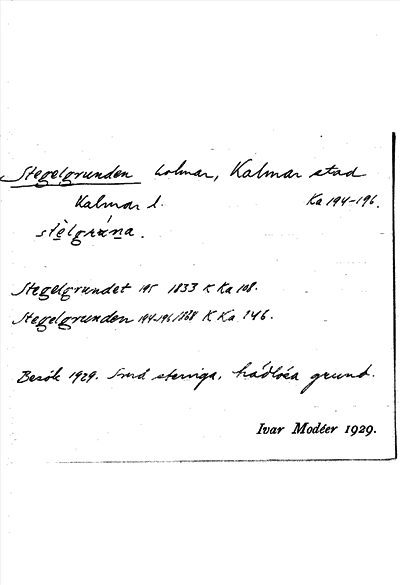 Stegelgrunden holmar, Kalmar stad
Kalmar l. Ka 194-196.
stè̱lgrúṉa.
Stegelgrundet 195 1833 K Ka 108.
Stegelgrunden 194-196 1868 K Ka 146.
Besök 1929. Små steniga, hådlösa grund.
Ivar Modéer 1929.